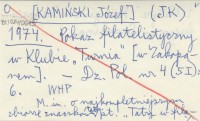 [KAMIŃSKI Józef] (JK)
1974. Pokaz filatelistyczny
w Klubie „Turnia” [w Zakopa-
nem]. – Dz. Pol. nr 4 (5 I) s.
6. WHP
M. in. o najkompletniejszym
zbiorze znaczków pt. „Tatry w